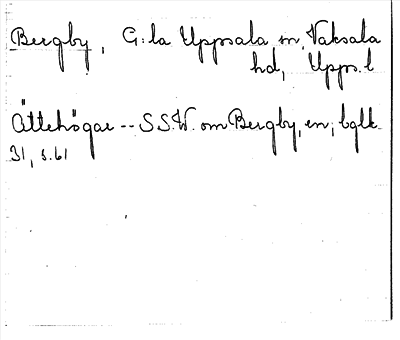 Bergby, G:la Uppsala sn, Vaksala
hd, Upps. l
Ättehögar -- S S.W. om Bergby, en; bglk.
31, s. 61